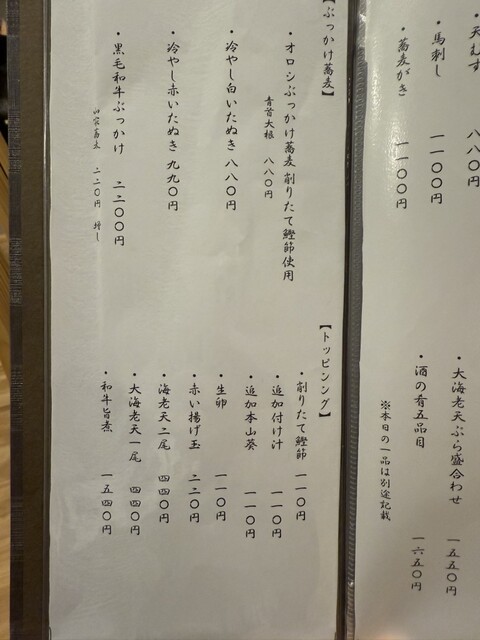 ・天むす 八八〇円
・馬刺し 一一〇〇円
・蕎麦がき 一一〇〇円
・大海老天ぷら盛合わせ 一五五〇円
・酒の肴五品目 一六五〇円
※本日の一品は別途記載
【ぶっかけ蕎麦】
・オロシぶっかけ蕎麦 削りたて鰹節使用
青首大根 八八〇円
・冷やし白いたぬき 八八〇円
・冷やし赤いたぬき 九九〇円
・黒毛和牛ぶっかけ 二二〇〇円
田舎蕎麦 二二〇円 増し
【トッピング】
・削りたて鰹節 一一〇円
・追加付け汁 一一〇円
・追加本山葵 一一〇円
・生卵 一一〇円
・赤い揚げ玉 二二〇円
・海老天二尾 四四〇円
・大海老天一尾 四四〇円
・和牛旨煮 一五四〇円